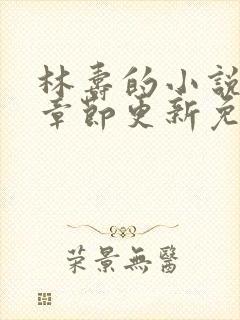 林寿的小說
章節更新免
荣景無醫